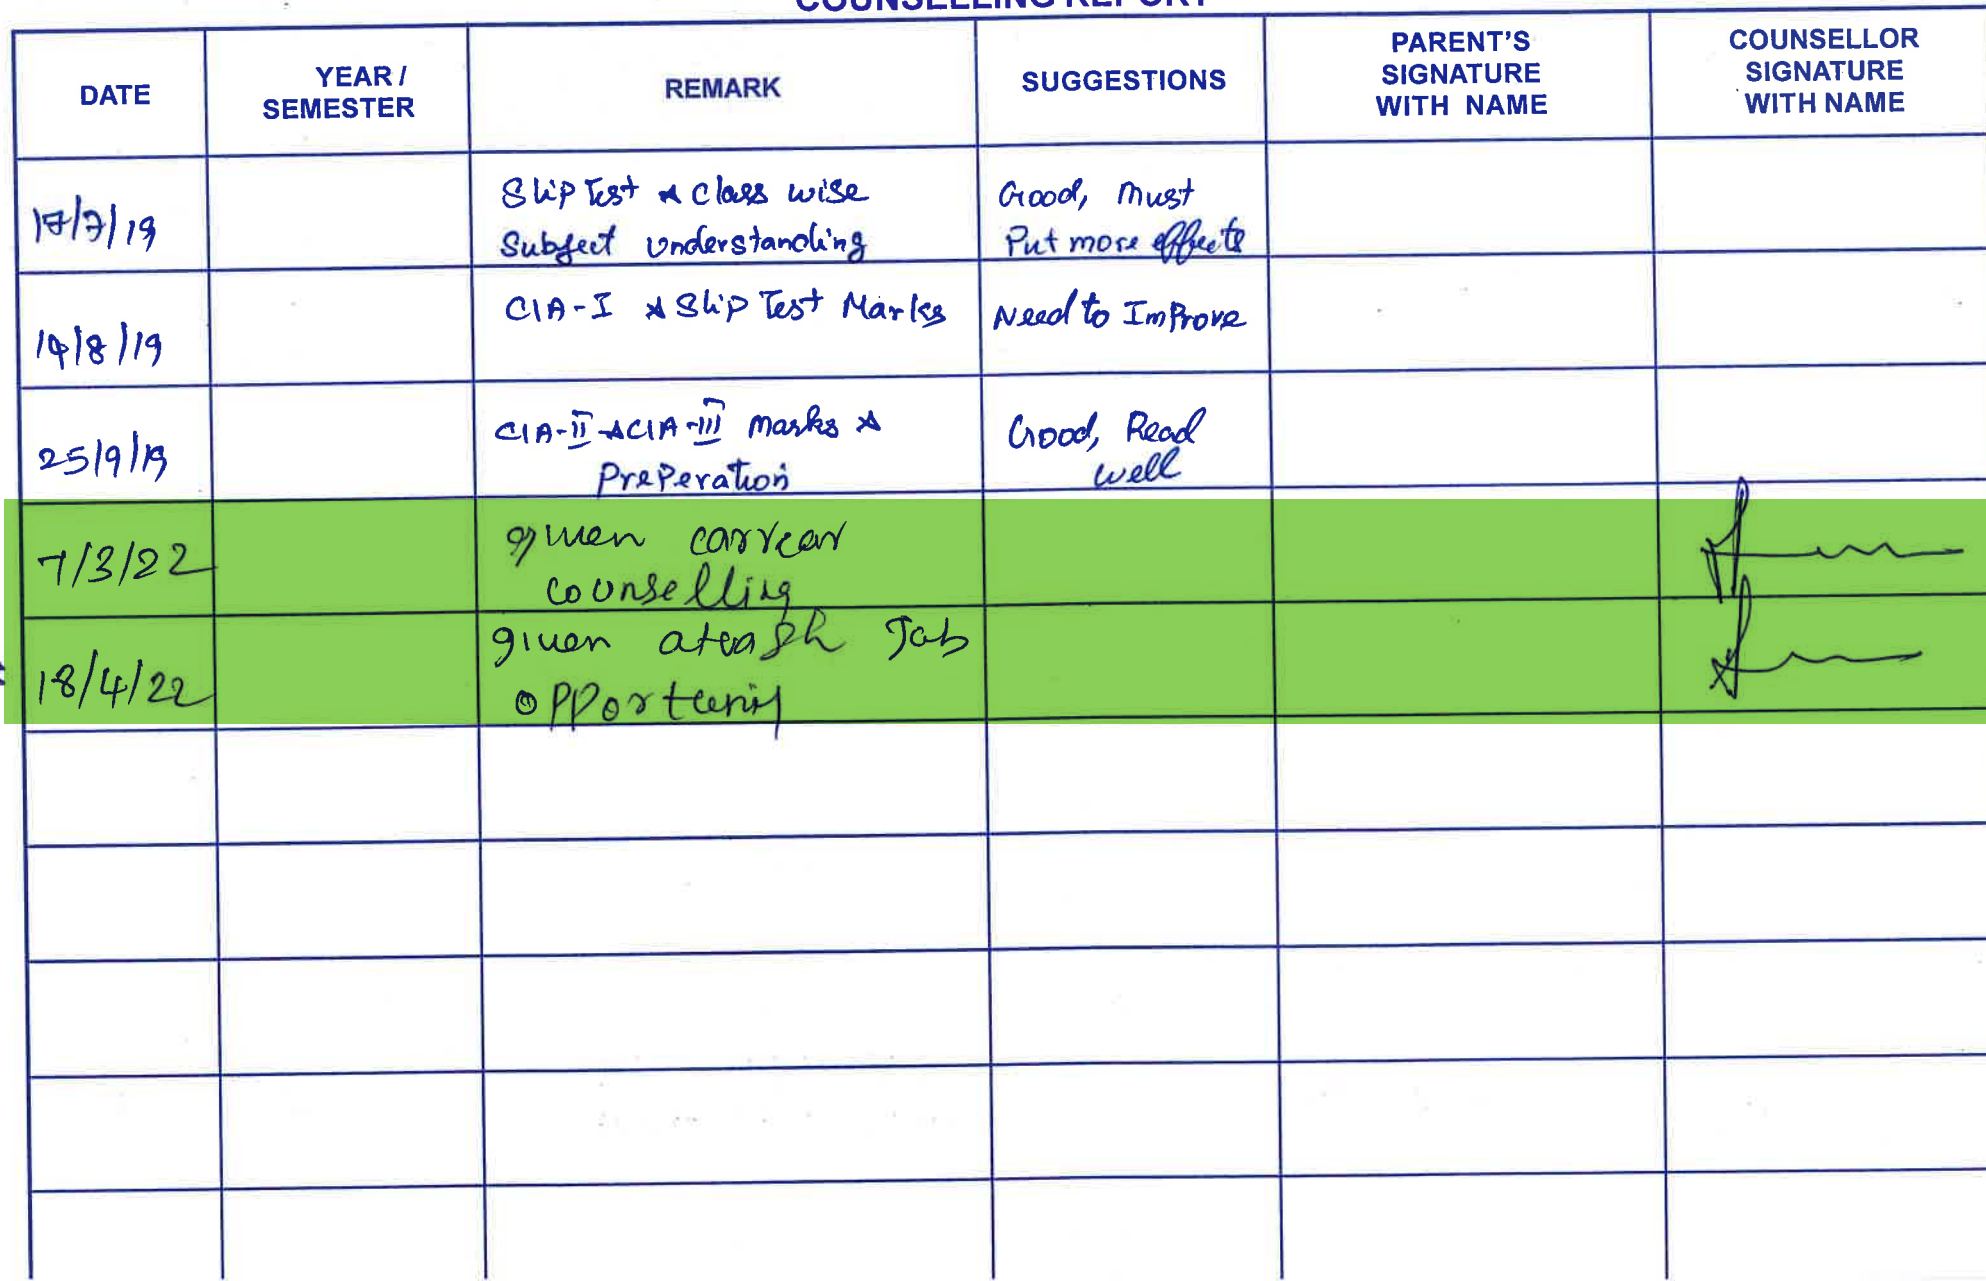 COUNSELLING REPORT
DATE
YEAR /
SEMESTER
REMARK
SUGGESTIONS
PARENT'S
SIGNATURE
WITH NAME
COUNSELLOR
SIGNATURE
WITH NAME
17/7/19
Slip Test & Class wise
Subject Understanding
Good, Must
Put more effects
14/8/19
CIA-I & Slip Test Marks
Need to Improve
25/9/19
CIA-II & CIA-III Marks &
Preperation
Good, Read
well
7/3/22
given carrear
counselling
18/4/22
given Job
opportuniy